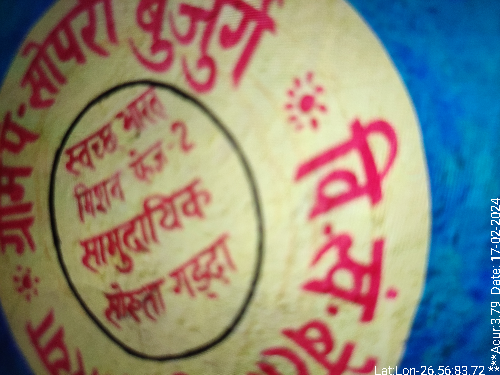 ग्राम पं. सोपरी बुजुर्ग
वि. खं.
स्वच्छ भारत
मिशन फेज-2
सामुदायिक
सोख्ता गड्ढा
Lat:Lon-26.56:83.72
***Acur:3.79 Date: 17-02-2024